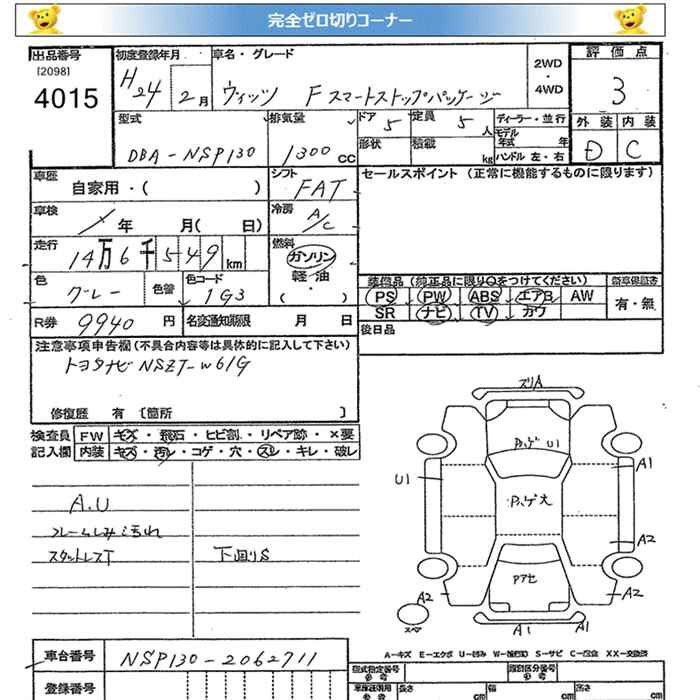 完全ゼロ切りコーナー
出品番号
[2098]
4015
初度登録年月
H24 2月
車名・グレード
ヴィッツ F スマートストップパッケージ
2WD
・
4WD
評価点
3
外装 内装
D C
型式
DBA-NSP130
排気量
1300 cc
ドア 5
定員 5 人
形状
積載 kg
ディーラー・並行
モデル年式 年
ハンドル 左・右
車歴
自家用・( )
シフト
FAT
車検
年 月( 日)
冷房
A/C
走行
14万6千549 km
燃料
ガソリン
軽・油
・
( )
色
グレー
色替
色コード
1G3
R券 9940 円
名変通知期限 月 日
セールスポイント (正常に機能するものに限ります)
装備品(純正品に限り○をつけてください)
PS PW ABS エアB AW
SR ナビ TV カワ
新車保証書
有・無
後日品
注意事項申告欄(不具合内容等は具体的に記入して下さい)
トヨタナビ NSZT-W61G
修復歴 有 [箇所 ]
検査員
記入欄
FW キズ・飛石・ヒビ割・リペア跡・×要
内装 キズ・汚レ・コゲ・穴・スレ・キレ・破レ
A.U
フレームしみ汚れ
スタットレスT
下回りS
ズリA
U1
U1
A1
A2
A2
A2
A1
A1
スペア
A-キズ E-エクボ U-凹み W-補修跡 S-サビ C-腐食 XX-交換済
車台番号
NSP130-2062711
登録番号
型式指定番号
参考
類別区分番号
参考
長さ cm
幅 cm
高さ cm